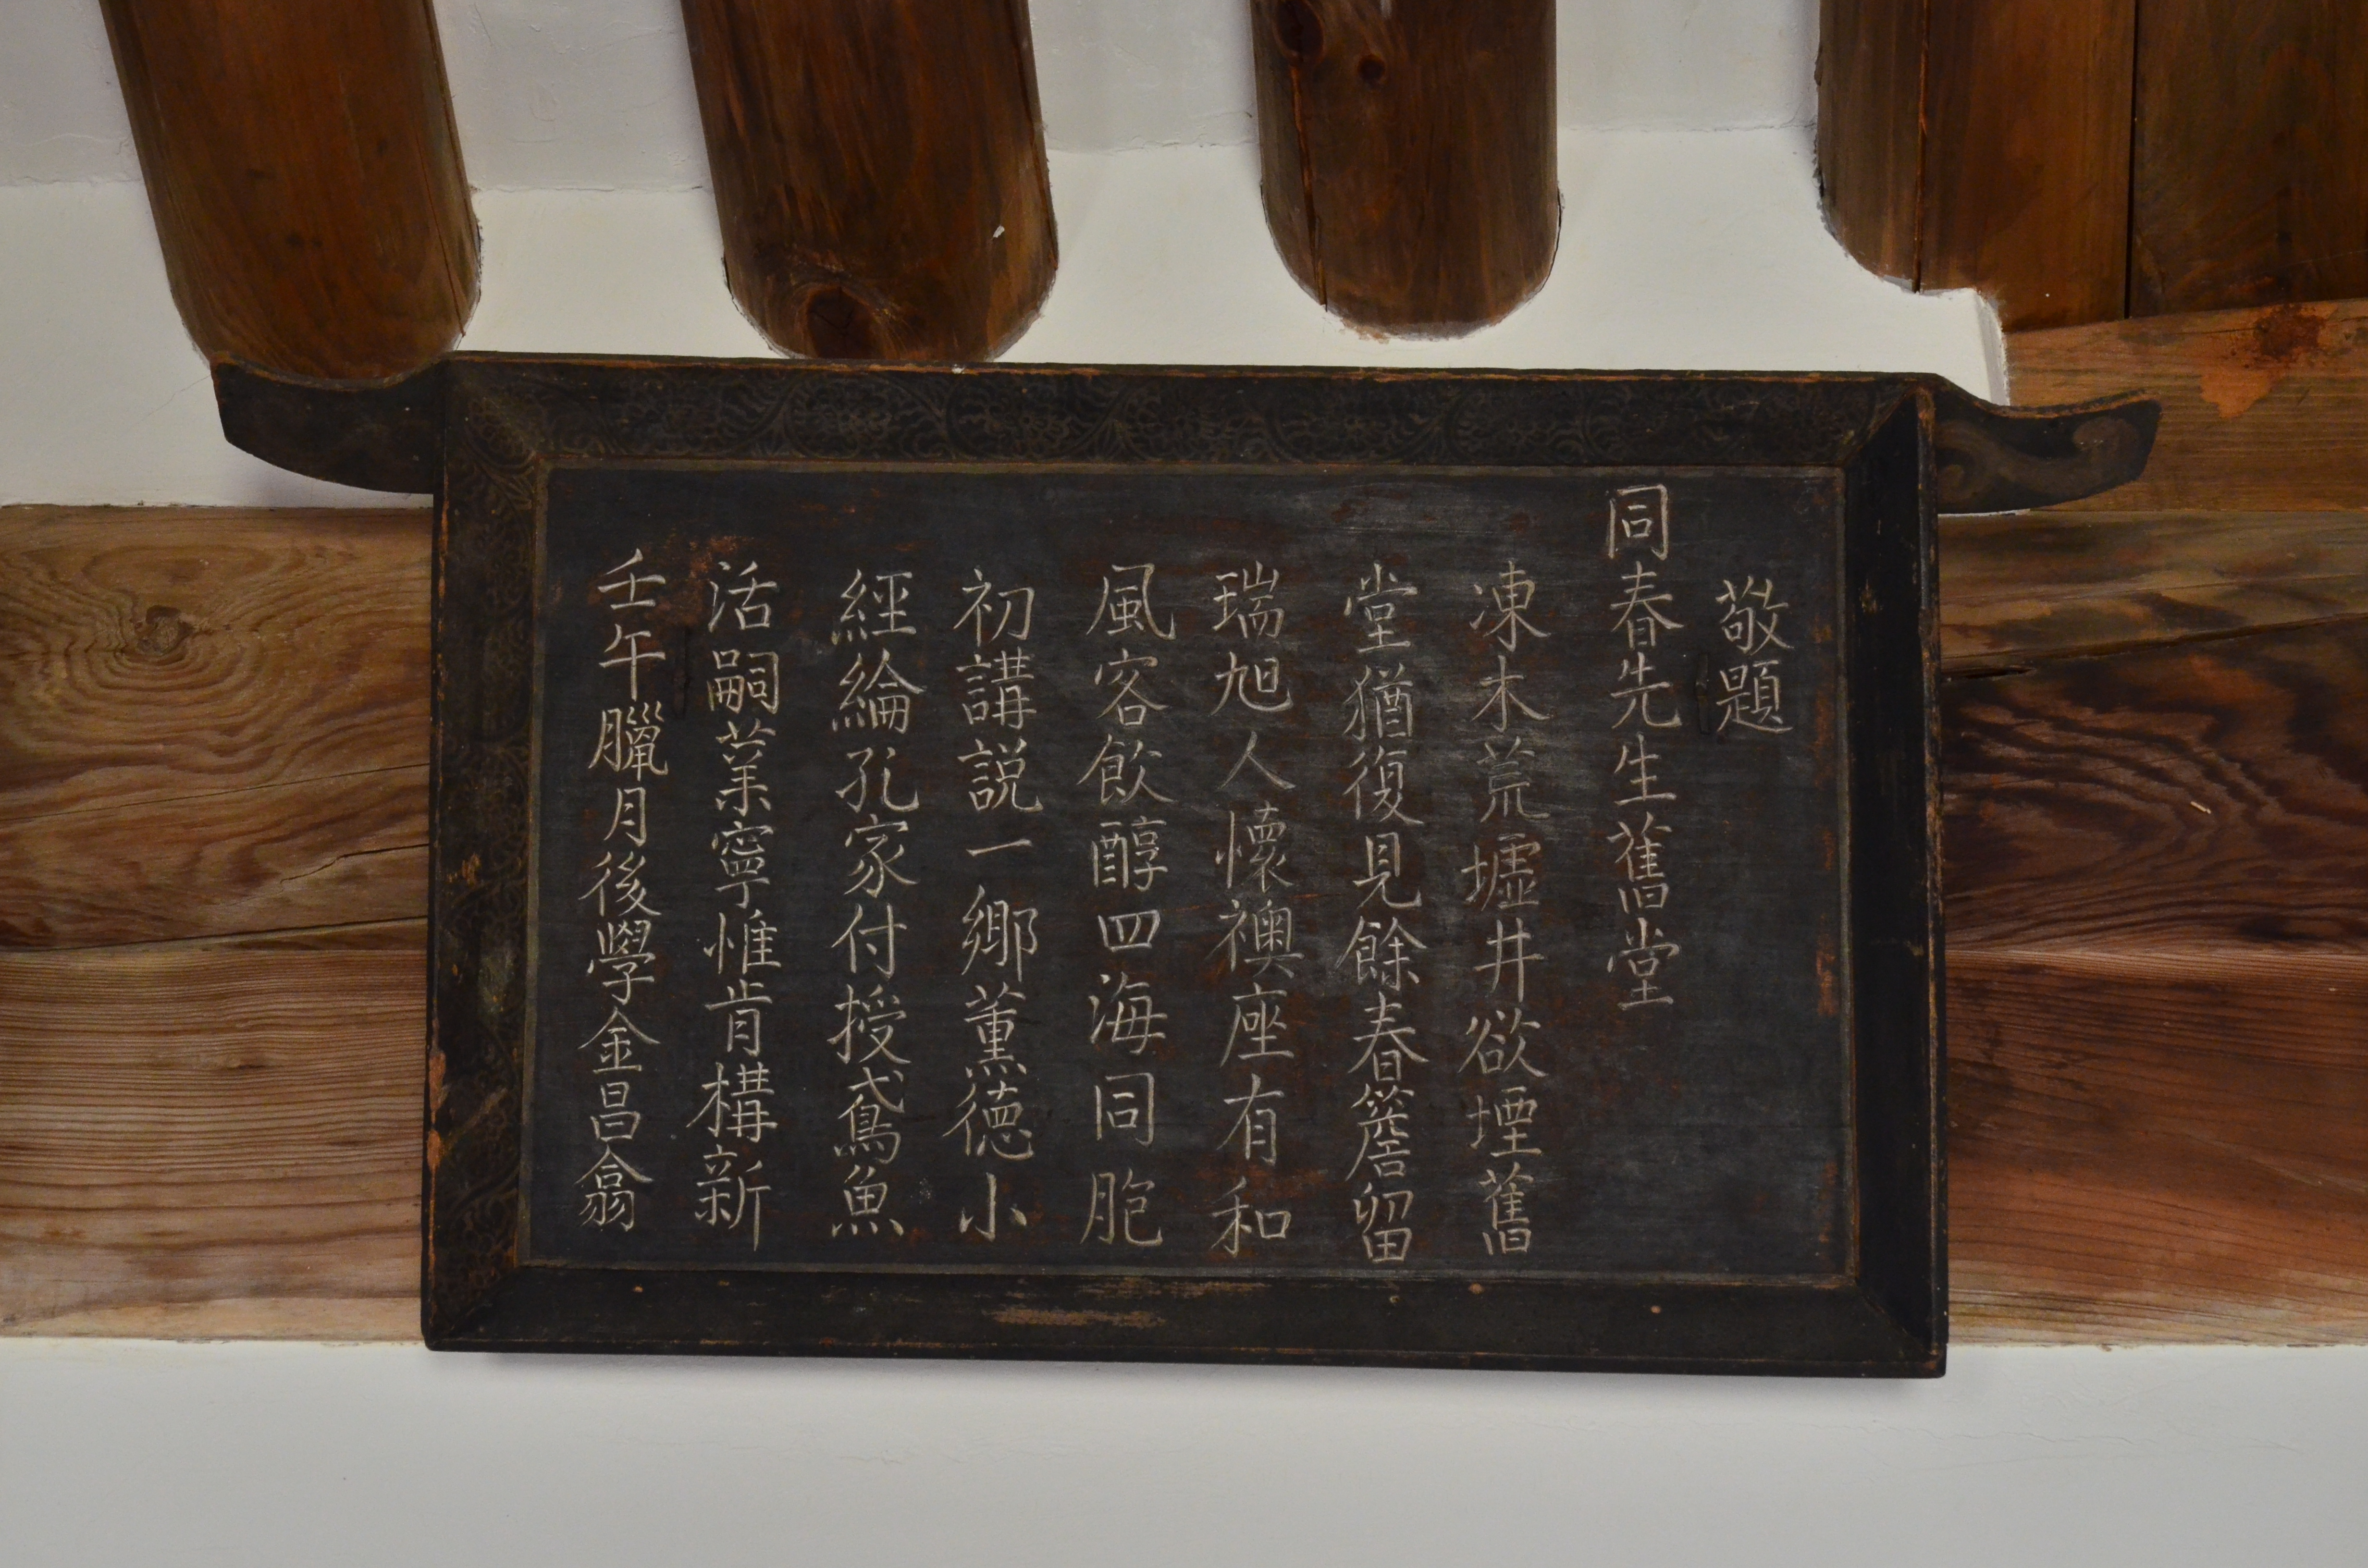 敬題
同春先生舊堂
凍木荒墟井欲堙舊
堂猶復見餘春簷留
瑞旭人懷襖座有和
風客飲醇四海同胞
初講説一鄉薰德小
經綸孔家付授鳶魚
活嗣業寧惟肯構新
壬午臘月後學金昌翕